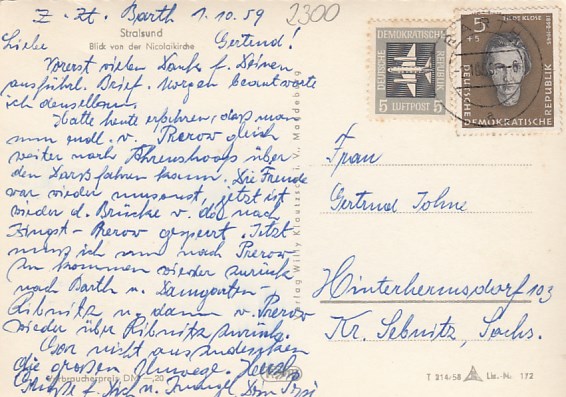 z. Zt. Barth 1.10.59
2300
Stralsund
Blick von der Nicolaikirche
Liebe Gertrud!
Vorerst vielen Dank f. Deinen
ausführl. Brief. Morgen beantworte
ich denselben.
Hatte heute erfahren, daß man
nun endl. v. Prerow gleich
weiter nach Ahrenshoop über
den Darß fahren kann. Die Freude
war wieder umsonst, jetzt ist
wieder d. Brücke v. da nach
Zingst-Prerow gesperrt. Jetzt
muß ich um nach Prerow
zu kommen wieder zurück
nach Barth u. Damgarten-
Ribnitz u. dann v. Prerow
wieder über Ribnitz zurück.
Gar nicht auszudenken
die großen Umwege. Herzl.
Grüße f. Dich u.
Verbraucherpreis DM —,20
Verlag Willy Klautzsch, i. V., Magdeburg
DEUTSCHE DEMOKRATISCHE REPUBLIK
5 LUFTPOST 5
5
+5
HILDE KLOSE
DEUTSCHE
DEMOKRATISCHE REPUBLIK
Frau
Gertrud Tohne
Hinterhermsdorf 103
Kr. Sebnitz, Sachs.
T 314/58 Liz.-Nr. 172